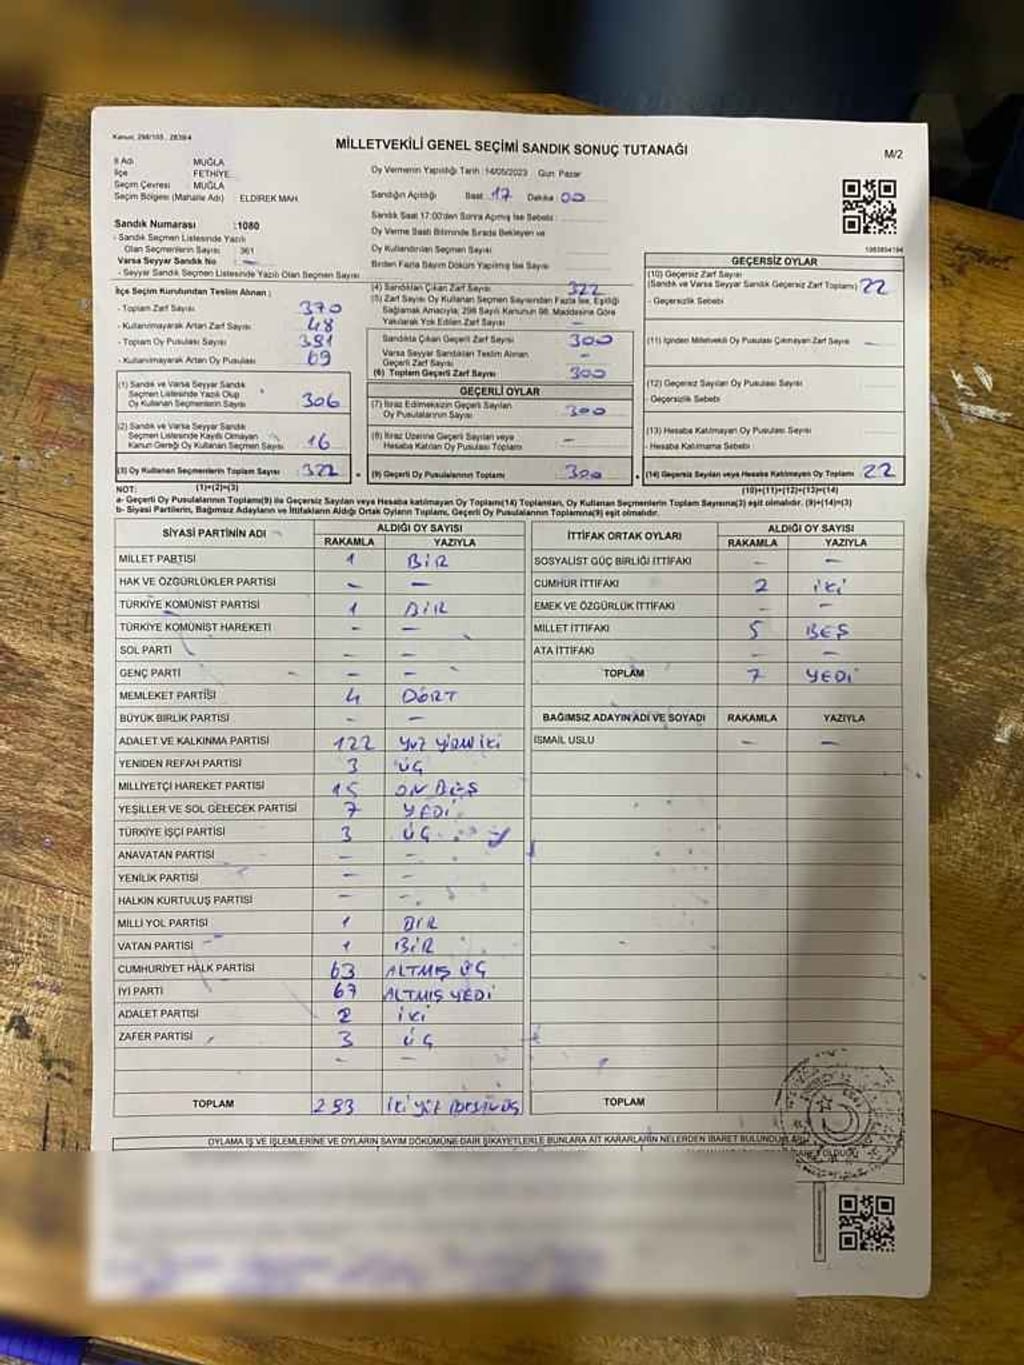 Kanun: 298/105, 2839/4
MİLLETVEKİLİ GENEL SEÇİMİ SANDIK SONUÇ TUTANAĞI
M/2
İl Adı MUĞLA
İlçe FETHİYE
Seçim Çevresi MUĞLA
Seçim Bölgesi (Mahalle Adı) ELDİREK MAH.
Sandık Numarası :1080
- Sandık Seçmen Listesinde Yazılı
Olan Seçmenlerin Sayısı 361
Varsa Seyyar Sandık No : -
- Seyyar Sandık Seçmen Listesinde Yazılı Olan Seçmen Sayısı
Oy Vermenin Yapıldığı Tarih :14/05/2023 Gün: Pazar
Sandığın Açıldığı Saat :17 Dakika :00
Sandık Saat 17:00'den Sonra Açılmış İse Sebebi :
Oy Verme Saati Bitiminde Sırada Bekleyen ve
Oy Kullandırılan Seçmen Sayısı
Birden Fazla Sayım Döküm Yapılmış İse Sayısı
İlçe Seçim Kurulundan Teslim Alınan ;
- Toplam Zarf Sayısı : 370
- Kullanılmayarak Artan Zarf Sayısı : 48
- Toplam Oy Pusulası Sayısı : 391
- Kullanılmayarak Artan Oy Pusulası : 69
(1) Sandık ve Varsa Seyyar Sandık
Seçmen Listesinde Yazılı Olup
Oy Kullanan Seçmenlerin Sayısı : 306
(2) Sandık ve Varsa Seyyar Sandık
Seçmen Listesinde Kayıtlı Olmayan
Kanun Gereği Oy Kullanan Seçmen Sayısı : 16
(3) Oy Kullanan Seçmenlerin Toplam Sayısı : 322
(1)+(2)=(3)
(4) Sandıktan Çıkan Zarf Sayısı : 322
(5) Zarf Sayısı Oy Kullanan Seçmen Sayısından Fazla İse, Eşitliği
Sağlamak Amacıyla; 298 Sayılı Kanunun 98. Maddesine Göre
Yakılarak Yok Edilen Zarf Sayısı : -
Sandıkta Çıkan Geçerli Zarf Sayısı : 300
Varsa Seyyar Sandıktan Teslim Alınan
Geçerli Zarf Sayısı : -
(6) Toplam Geçerli Zarf Sayısı : 300
GEÇERLİ OYLAR
(7) İtiraz Edilmeksizin Geçerli Sayılan
Oy Pusulalarının Sayısı : 300
(8) İtiraz Üzerine Geçerli Sayılan veya
Hesaba Katılan Oy Pusulası Toplamı : -
(9) Geçerli Oy Pusulalarının Toplamı : 300
1083854194
GEÇERSİZ OYLAR
(10) Geçersiz Zarf Sayısı
(Sandık ve Varsa Seyyar Sandık Geçersiz Zarf Toplamı) : 22
- Geçersizlik Sebebi
(11) İçinden Milletvekili Oy Pusulası Çıkmayan Zarf Sayısı : -
(12) Geçersiz Sayılan Oy Pusulası Sayısı
- Geçersizlik Sebebi
(13) Hesaba Katılmayan Oy Pusulası Sayısı
- Hesaba Katılmama Sebebi
(14) Geçersiz Sayılan veya Hesaba Katılmayan Oy Toplamı : 22
(10)+(11)+(12)+(13)=(14)
NOT:
a- Geçerli Oy Pusulalarının Toplamı(9) ile Geçersiz Sayılan veya Hesaba katılmayan Oy Toplamı(14) Toplamları, Oy Kullanan Seçmenlerin Toplam Sayısına(3) eşit olmalıdır. (9)+(14)=(3)
b- Siyasi Partilerin, Bağımsız Adayların ve İttifakların Aldığı Ortak Oyların Toplamı, Geçerli Oy Pusulalarının Toplamına(9) eşit olmalıdır.
SİYASİ PARTİNİN ADI ALDIĞI OY SAYISI
RAKAMLA YAZIYLA
MİLLET PARTİSİ 1 BİR
HAK VE ÖZGÜRLÜKLER PARTİSİ - -
TÜRKİYE KOMÜNİST PARTİSİ 1 BİR
TÜRKİYE KOMÜNİST HAREKETİ - -
SOL PARTİ - -
GENÇ PARTİ - -
MEMLEKET PARTİSİ 4 DÖRT
BÜYÜK BİRLİK PARTİSİ - -
ADALET VE KALKINMA PARTİSİ 122 YÜZ YİRMİ İKİ
YENİDEN REFAH PARTİSİ 3 ÜÇ
MİLLİYETÇİ HAREKET PARTİSİ 15 ON BEŞ
YEŞİLLER VE SOL GELECEK PARTİSİ 7 YEDİ
TÜRKİYE İŞÇİ PARTİSİ 3 ÜÇ
ANAVATAN PARTİSİ - -
YENİLİK PARTİSİ - -
HALKIN KURTULUŞ PARTİSİ - -
MİLLİ YOL PARTİSİ 1 BİR
VATAN PARTİSİ 1 BİR
CUMHURİYET HALK PARTİSİ 63 ALTMIŞ ÜÇ
İYİ PARTİ 67 ALTMIŞ YEDİ
ADALET PARTİSİ 2 İKİ
ZAFER PARTİSİ 3 ÜÇ
- -
TOPLAM 293
İTTİFAK ORTAK OYLARI ALDIĞI OY SAYISI
RAKAMLA YAZIYLA
SOSYALİST GÜÇ BİRLİĞİ İTTİFAKI - -
CUMHUR İTTİFAKI 2 İKİ
EMEK VE ÖZGÜRLÜK İTTİFAKI - -
MİLLET İTTİFAKI 5 BEŞ
ATA İTTİFAKI - -
TOPLAM 7 YEDİ
BAĞIMSIZ ADAYIN ADI VE SOYADI RAKAMLA YAZIYLA
İSMAİL USLU - -
TOPLAM
OYLAMA İŞ VE İŞLEMLERİNE VE OYLARIN SAYIM DÖKÜMÜNE DAİR ŞİKAYETLERLE BUNLARA AİT KARARLARIN NELERDEN İBARET BULUNDUĞU